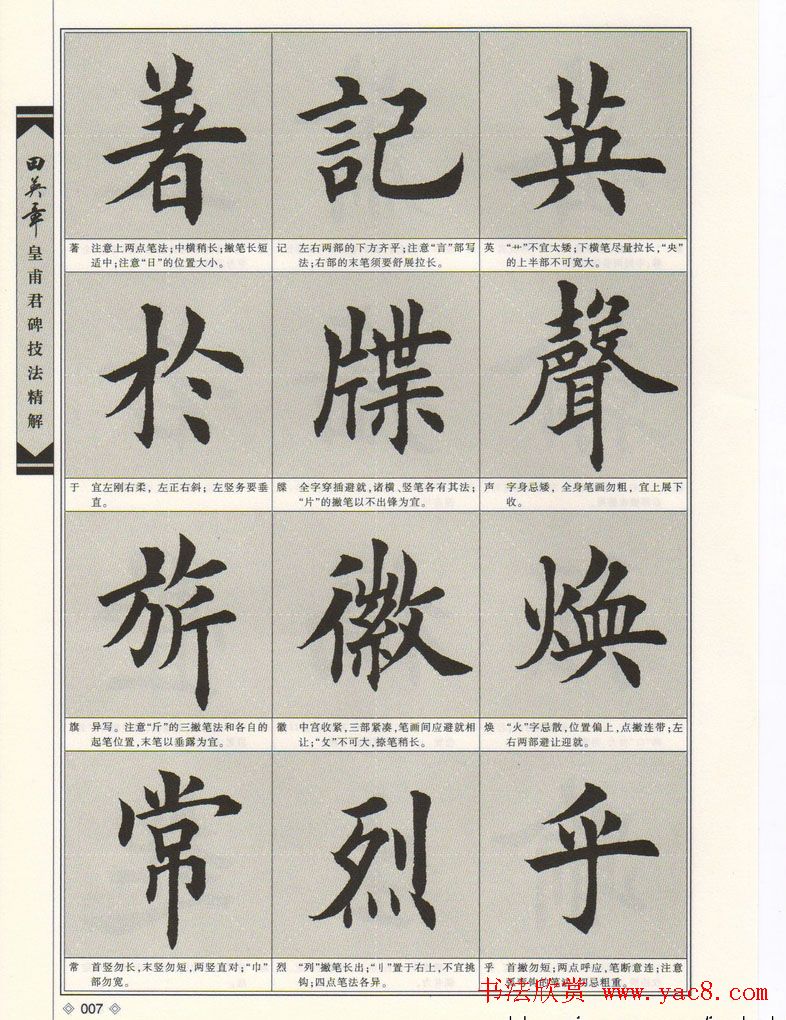 田英章
皇甫君碑技法精解
著 記 英
著 注意上两点笔法;中横稍长;撇笔长短
适中;注意“日”的位置大小。
记 左右两部的下方齐平;注意“言”部写
法;右部的末笔须要舒展拉长。
英 “艹”不宜太矮;下横笔尽量拉长,“央”
的上半部不可宽大。
於 牒 聲
于 宜左刚右柔,左正右斜;左竖务要垂
直。
牒 全字穿插避就,诸横、竖笔各有其法;
“片”的撇笔以不出锋为宜。
声 字身忌矮,全身笔画勿粗,宜上展下
收。
旂 徽 焕
旗 异写。注意“斤”的三撇笔法和各自的
起笔位置,末笔以垂露为宜。
徽 中宫收紧,三部紧凑,笔画间应避就相
让;“攵”不可大,捺笔稍长。
焕 “火”字忌散,位置偏上,点撇连带;左
右两部避让迎就。
常 烈 乎
常 首竖勿长,末竖勿短,两竖直对;“巾”
部勿宽。
烈 “列”撇笔长出;“刂”置于右上,不宜挑
钩;四点笔法各异。
乎 首撇勿短;两点呼应,笔断意连;注意
切忌粗重。
书法欣赏 www.yac8.com
007